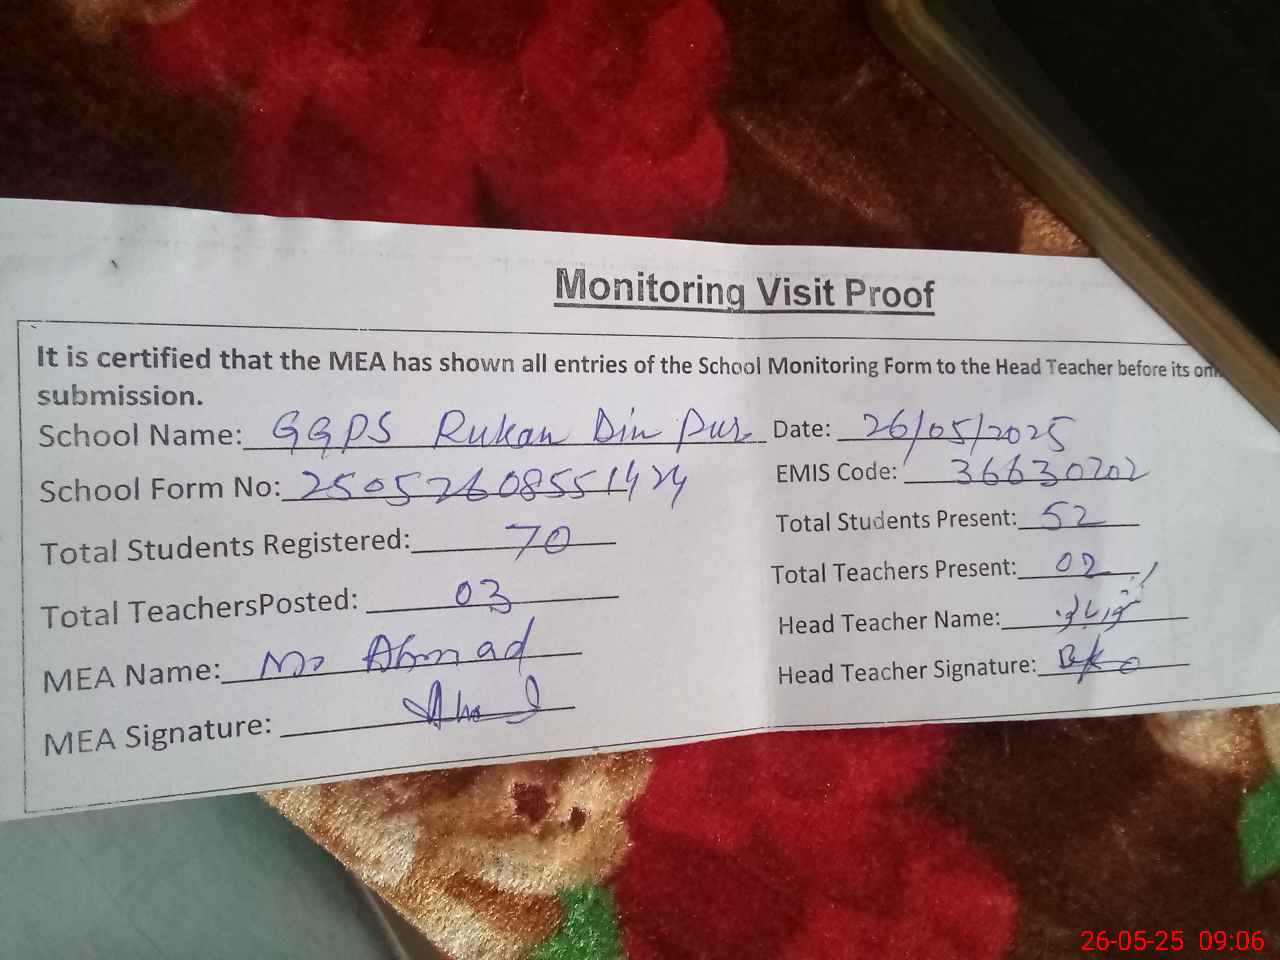 Monitoring Visit Proof
It is certified that the MEA has shown all entries of the School Monitoring Form to the Head Teacher before its
submission.
School Name: GGPS Rukan Din Pur Date: 26/05/2025
School Form No: 25052608551424 EMIS Code: 36630202
Total Students Registered: 70 Total Students Present: 52
Total TeachersPosted: 03 Total Teachers Present: 02
MEA Name: Ahmad Head Teacher Name:
MEA Signature: Head Teacher Signature:
26-05-25 09:06